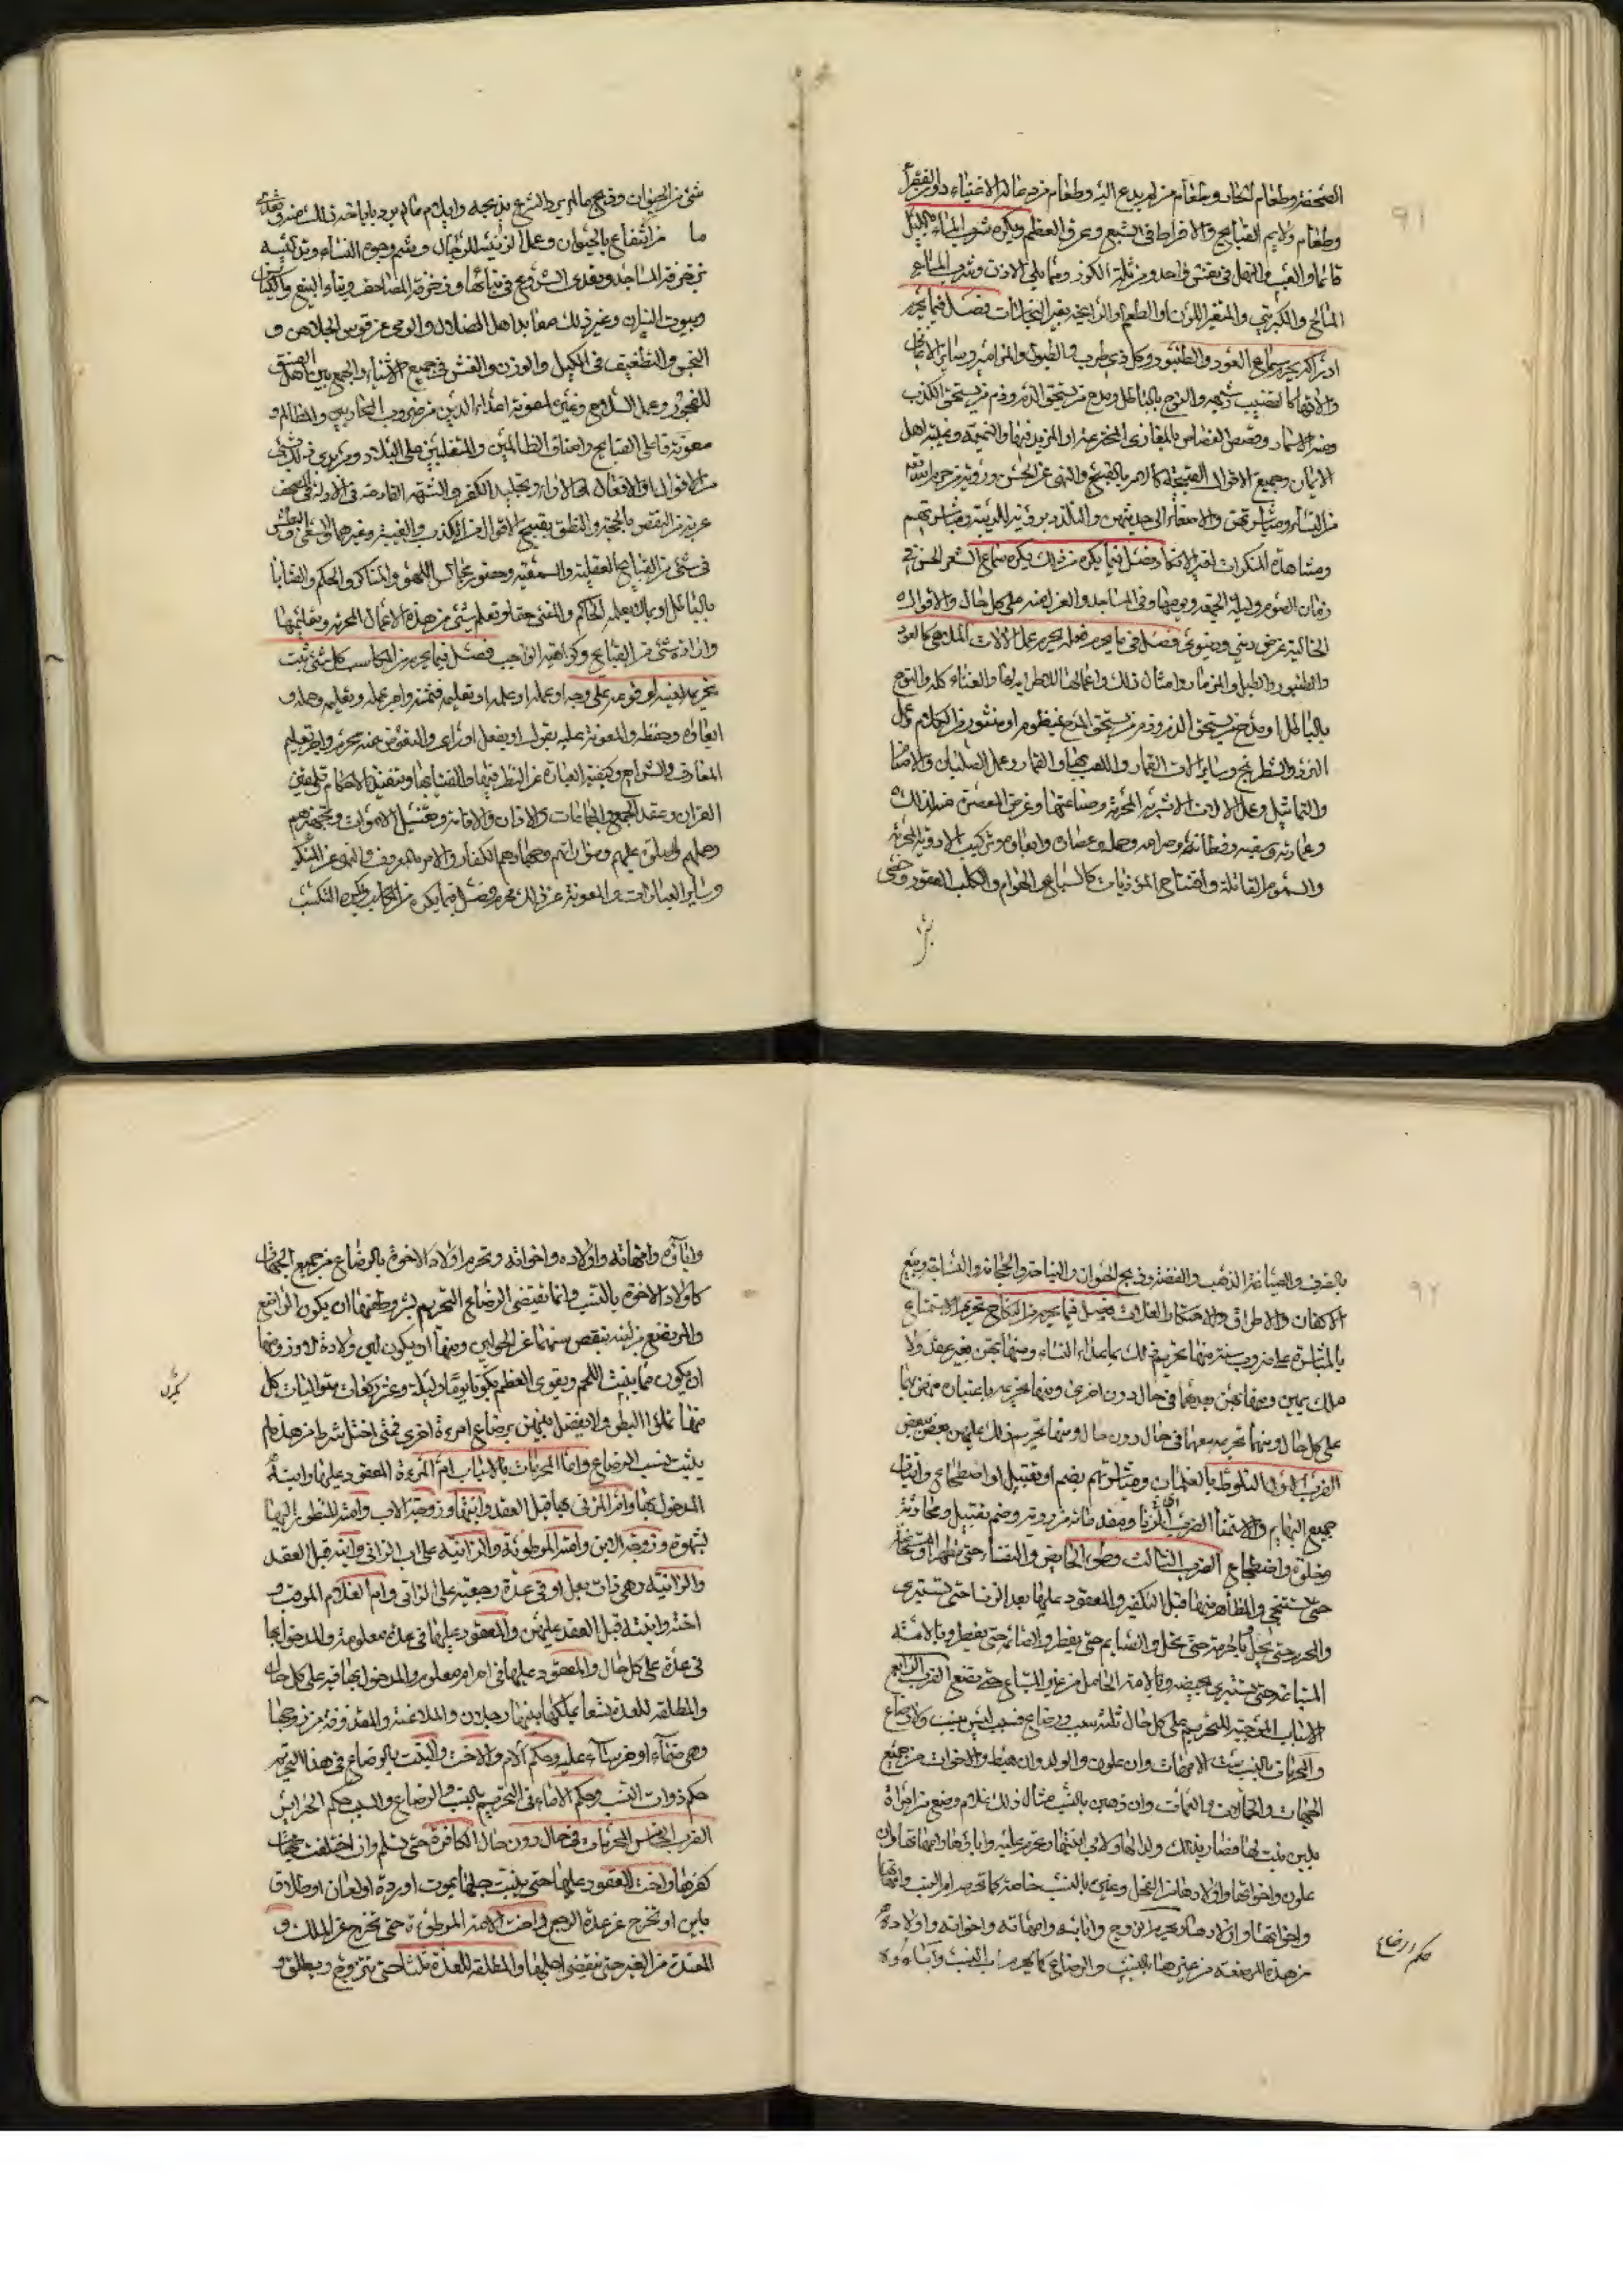 ٩١
الصحفة وطعام الفجاة وطعام من لم يدع اليه وطعام من دعا له الاغنياء دون الفقراء
وطعام ولايم القبايح والافراط في الشبع وعرق العظم ويكره شرب الماء بالليل
قائما والعب والنهل في نفس واحد ومن ثلمة الكوز ومما يلي الاذن وشرب الماء
المالح والكبريتي والمتغير اللون او الطعم او الرايحة بغير النجاسات فصل فيما يحرم
ادراكه يحرم سماع العود والطنبور وكل ذي طرب والطبول والمزامير وساير الاغاني
والايقاع كالقضيب وشبهه والنوح بالباطل ومدح من يستحق الذم وذم من يستحق الكذب
وقصص القصاص بالمغازي المخترعة او المزيد فيها والنميمة وغيبة اهل
الايمان وجميع الاقوال القبيحة كالامر بالقبيح والنهي عن الحسن ورؤية من حرم الله
من النساء ومباشرتهن والاصغاء الى حديثهن والتلذذ برؤية
ومشاهدة المنكرات لغير الانكار فصل فيما يكره من ذلك يكره سماع الشعر الحسن في
زمان الصوم وليلة الجمعة ويومها وفي المساجد والغزل منه على كل حال والاقوال
الخالية عن غرض ديني ودنيوي فصل في ما يحرم فعله يحرم عمل الالات الملاهي كالعود
والطنبور والطبل والمزمار وامثال ذلك واعمالها للاطراب بها والغناء كله والنوح
بالباطل او مدح من يستحق الذم وذم من يستحق المدح بمنظوم او منثور من الكلام وعمل
النرد والشطرنج وساير الات القمار واللعب بها والقمار وعمل الصلبان والاصنام
والتماثيل وعمل الالات الاشربة المحرمة وصناعتها وغرض المعصية
وعمارته وسقيه وقطافه وصرامه وحمله وعصاره وابقاوه وتركيب الادوية المحرمة
والسموم القاتلة واقتناء المؤذيات كالسباع والهوام والكلب العقور وخصى
شئ من الحيوان وذبح مالم يرد الشرع بذبحه وايلام مالم يرد باباحة ذلك منه وتعدى
ما من انتفاع بالحيوان وعمل الزينة للرجال ووشم وجوه النساء وتزكية
زخرفة المساجد وتعدى المشروع في بنائها وفي زخرفة المصاحف وبناء البيع والكنايس
وبيوت النيران وغير ذلك من معابد اهل الضلال والرمي عن قوس الجلاهق و
البخس والتطفيف في الكيل والوزن والغش في جميع الاشياء والجمع بين اهل الفسق
للفجور وعمل السلاح وغيره لمعونة اعداء الدين من ضروب المحاربين والمظالم و
معونة فاعلى القبايح واصناف الظالمين والمتغلبين على البلاد
من الاقوال والافعال والاراء وتجليد الكفر والشبهة القادحة في الادلة
عرية من النقض بالحجة والنطق بقبيح الاقوال من الكذب والغيبة وغيرهما والسعي والبطش
في شئ من القبايح العقلية والسمعية وحضور مجالس اللهو والمناكر والحكم والقضايا
بالباطل او بما لا يعلمه الحاكم والمفتى حقا وتعلم شئ من هذه الاعمال المحرمة وتعليمها
وارادة شئ من القبايح وكراهية الواجب فصل فيما يحرم من المكاسب كل شئ ثبت
تحريمه لعينه او وقوعه على وجه او عمله او علمه او تعليمه فثمنه واجر عمله وتعليمه وحمله و
ابقاؤه وحفظه والمعونة عليه بقول او بفعل او راى والتعوض عنه محرم واجر تعليم
المعارف والشرايع وكيفية العبادة عن النظر فيها والفتيا بها وتنفيذ الاحكام وتلقين
القران وعقد الجمع والجماعات والاذان والاقامة وتغسيل الاموات وتجهيزهم
وحملهم والصلوة عليهم ومواراتهم وجهاد الكفار والامر بالمعروف والنهي عن المنكر
وساير العبادات والمعونة عن ذلك محرم فصل فيما يكره من المكاسب يكره التكسب
٩٢
بالصرف والصياغة الذهب والفضة وذبح الحيوان والنياحة والحجامة والنساجة وبيع
الاكفان والاطراق والاحتكار الغلات فصل فيما يحرم من النكاح تحريم الاستمتاع
بالمباشرة على ضروب ستة منها تحريم ذلك بما عداء النساء ومنها بهن بغير عقد ولا
ملك يمين ومنها بهن بعدهما في حال دون اخرى ومنها تحريمه باعيان منهن بها
على كل حال ومنها تحريمه معهما في حال دون حال ومنها تحريم ذلك عليهن بعض ببعض
الضرب الاول التلوط بالغلمان ومباشرتهم بضم او تقبيل او اضطجاع واتيان
جميع البهايم والاستمناء الضرب الثاني الزنا ومقدماته من روية وضم وتقبيل ومحادثة
وخلوة واضطجاع الضرب الثالث وطى الحايض والنفساء حتى تطهر او
حتى تستنجي والمظاهر منها قبل التكفير والمعقود عليها بعد الزنا حتى تستبرى
والمحرم حتى يحل وبالمحرمة حتى تحل والصايم حتى يفطر والصائمة حتى يفطر وبالامة
المبتاعة حتى تستبرى بحيضة وبالامة الحامل من غير المبتاع حتى تضع الضرب الرابع
الاسباب الموجبة للتحريم على كل حال ثلثة نسب ورضاع وسبب ليس بنسب ولا رضاع
والمحرمات بالنسب ست الامهات وان علون والولد وان هبط والاخوات من جميع
الجهات والخالات والعمات وان ذهبن بالنسب مثال ذلك غلام رضع من امراة
بلبن بنت لها فصار بذلك ولدا لها ولابي ابنتها وتحرم عليه وابائها وامهاتها وان
علون واخواتها واولادها من الفحل وغيره بالنسب خاصة كما تحرم ام النسب وامهاتها
واخواتها واولادها ويحرم الزوج وابائه وامهاته واخواته واولاده
من هذه المرضعة من غيرها بالنسب والرضاع كما يحرم اب النسب وآباءوه
حكم ارضاع
واباؤه وامهاته واولاده واخواته وتحرم اولاد الاخوة بالرضاع من جميع الجهات
كاولاد الاخوة بالنسب وانما تقتضي الرضاع التحريم بشروط منها ان يكون الراضع
والمرتضع من لبنه ينقص سنهما عن الحولين ومنها ان يكون لبن ولادة لا در ومنها
ان يكون مما ينبت اللحم ويقوي العظم بكونه يوما وليلة وعشر رضعات متواليات كل
منها تملؤا البطن ولا يفصل بينهن برضاع امرءة اخرى فمتى اختل شرط من هذه لم
يثبت نسب الرضاع واما المحرمات بالاسباب ام المرءة المعقود عليها وابنة
المدخول بها وام المزني بها قبل العقد وابنتها وزوجة الاب وامته المنظور اليها
بشهوة وزوجة الابن وامته الموطوئة والزانية على اب الزاني وابنه قبل العقد
والزانية وهي ذات بعل او في عدة رجعية على الزاني وام الغلام الموقب و
اخته وابنته قبل العقد عليهن والمعقود عليها في عدة معلومة والمدخول بها
في عدة على كل حال والمعقود عليها في احرام معلوم والمدخول بها فيه على كل حال
والمطلقة للعدة تسعا ينكحها بينها رجلان والملاعنة والمقذوفة من زوجها
وهي صماء او خرساء عليه وحكم الام والاخت والبنت بالرضاع في هذا التحريم
حكم ذوات النسب وحكم الاماء في التحريم بالنسب والرضاع والسبب حكم الحراير
الضرب الخامس المحرمات في حال دون حال الكافرة حتى تسلم وان اختلفت جهات
كفرها واخت المعقود عليها حتى يثبت حبلها بموت او ردة او لعان او طلاق
باين او تخرج عن عدة الرجعي واخت الامة الموطوءة حتى تخرج عن الملك و
المعتدة من الغير حتى ينقضى اجلها والمطلقة للعدة ثلثا حتى تتزوج ويطلق و